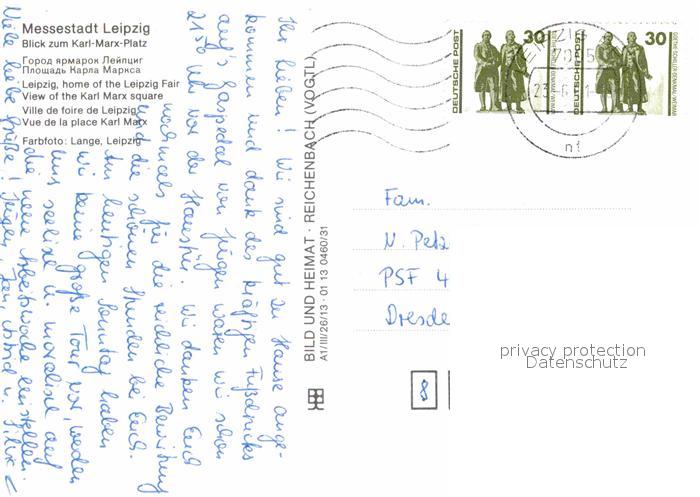 Messestadt Leipzig
Blick zum Karl-Marx-Platz
Город ярмарок Лейпциг
Площадь Карла Маркса
Leipzig, home of the Leipzig Fair
View of the Karl Marx square
Ville de foire de Leipzig
Vue de la place Karl Marx
Farbfoto: Lange, Leipzig
Ihr Lieben! Wir sind gut zu Hause ange-
kommen und dank des kräftigen Fußdruckes
auf's Gaspedal von Jürgen waren wir schon
21³⁰ Uhr vor der Haustür. Wir danken Euch
nochmals für die redliche Bewirtung
und die schönen Stunden bei Euch.
Am heutigen Sonntag haben
wir keine große Tour vor, werden
uns seelisch u. moralisch auf
die neue Arbeitswoche einstellen.
Viele liebe Grüße! Jürgen, u.
BILD UND HEIMAT · REICHENBACH (VOGTL)
A1/III/26/13 · 01 13 0460/31
DEUTSCHE POST 30
DEUTSCHE POST 30
LEIPZIG
Fam.
N. Petz
PSF 4
Dresde
8
privacy protection
Datenschutz